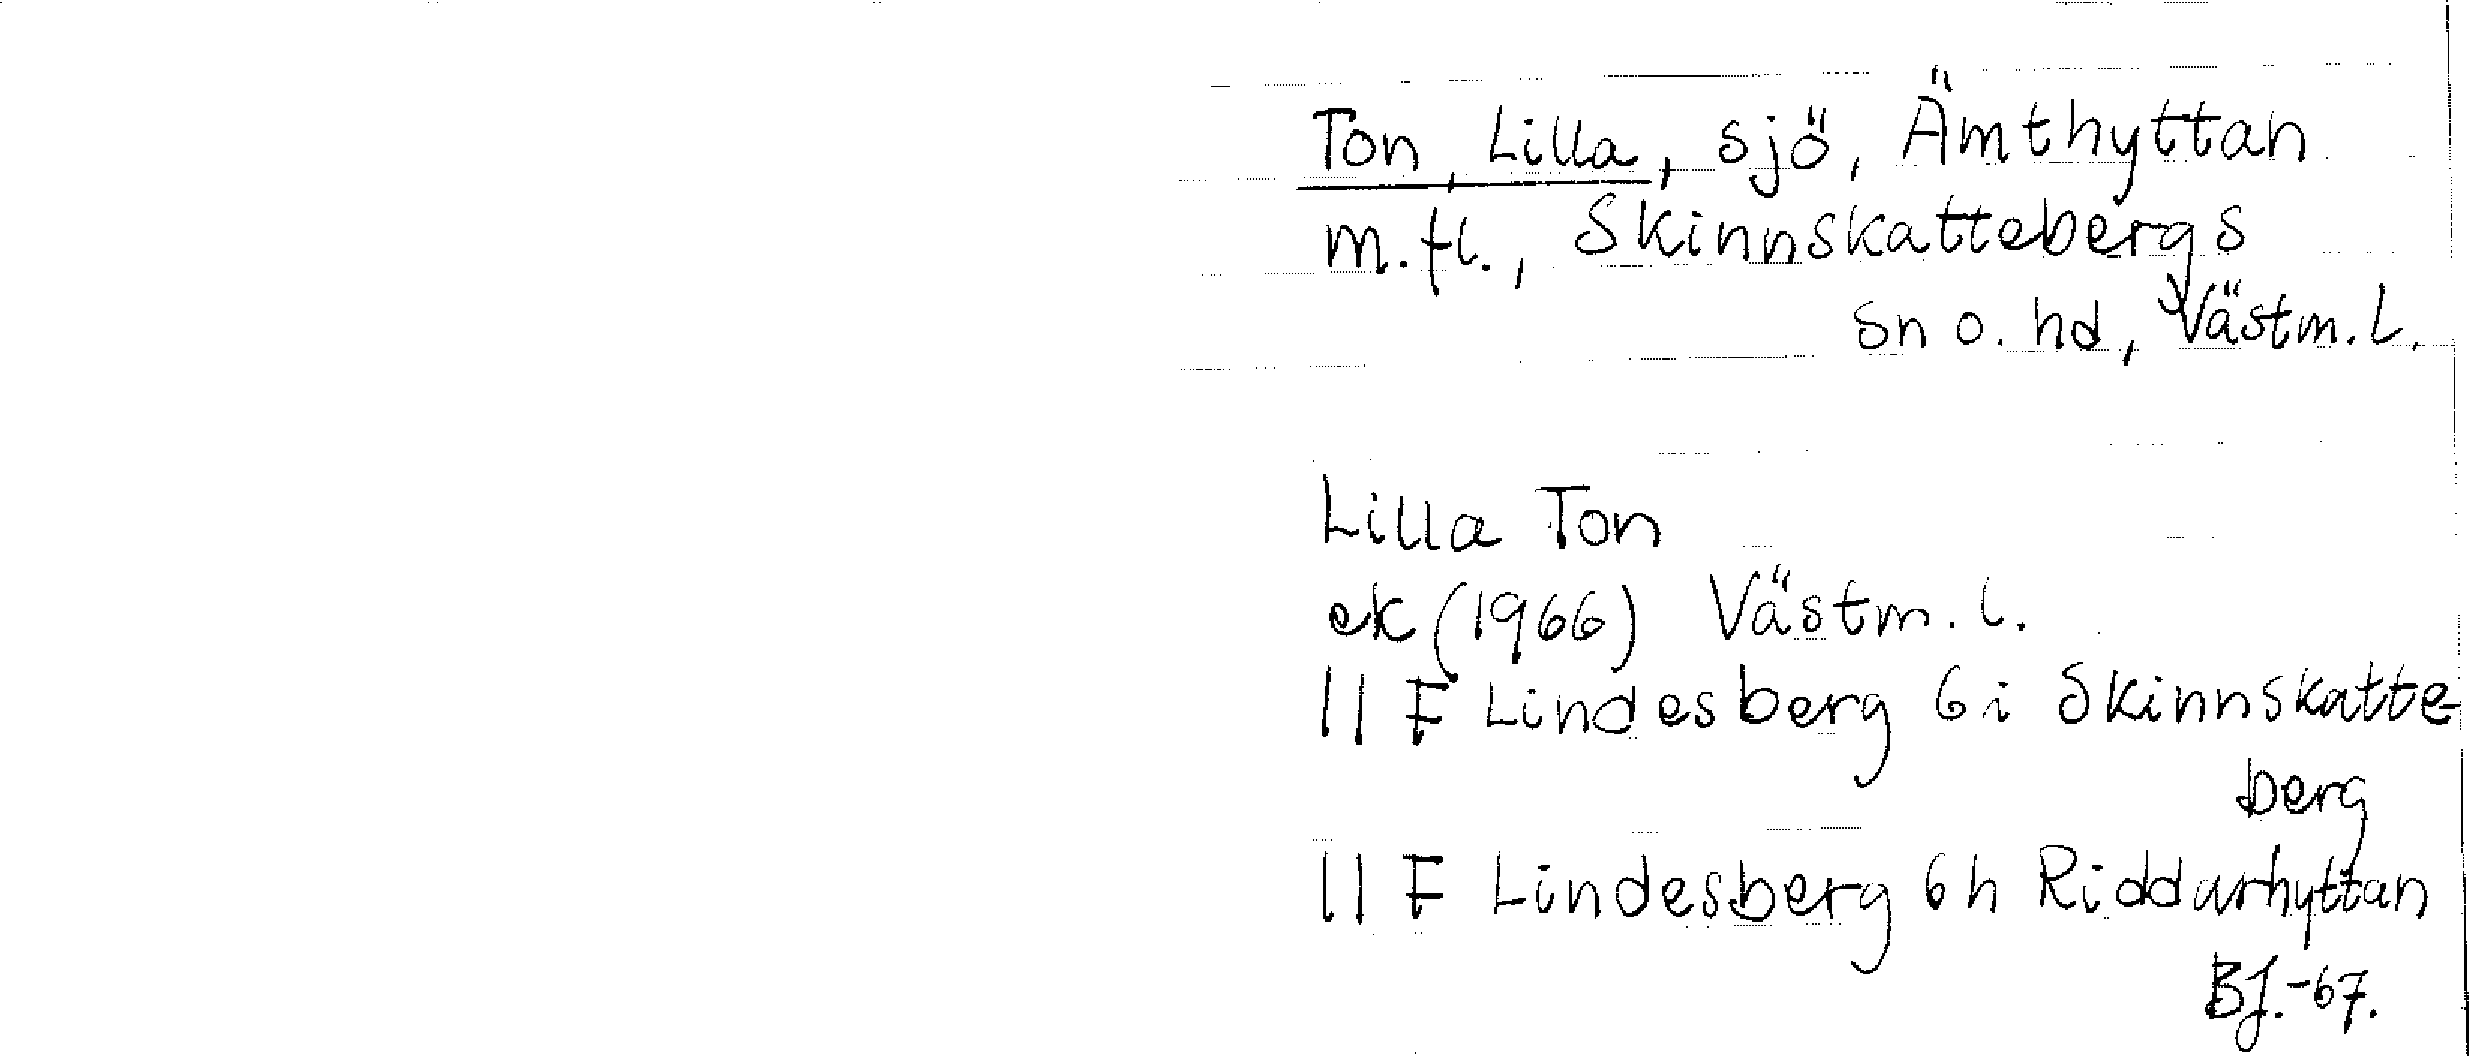 Ton, Lilla, sjö, Ämthyttan
m.fl., Skinnskattebergs
sn o. hd, Västm. L.
Lilla Ton
ek (1966) Västm. l.
11 F Lindesberg 6 i Skinnskatte-
berg
11 F Lindesberg 6h Riddarhyttan
BJ.-67.